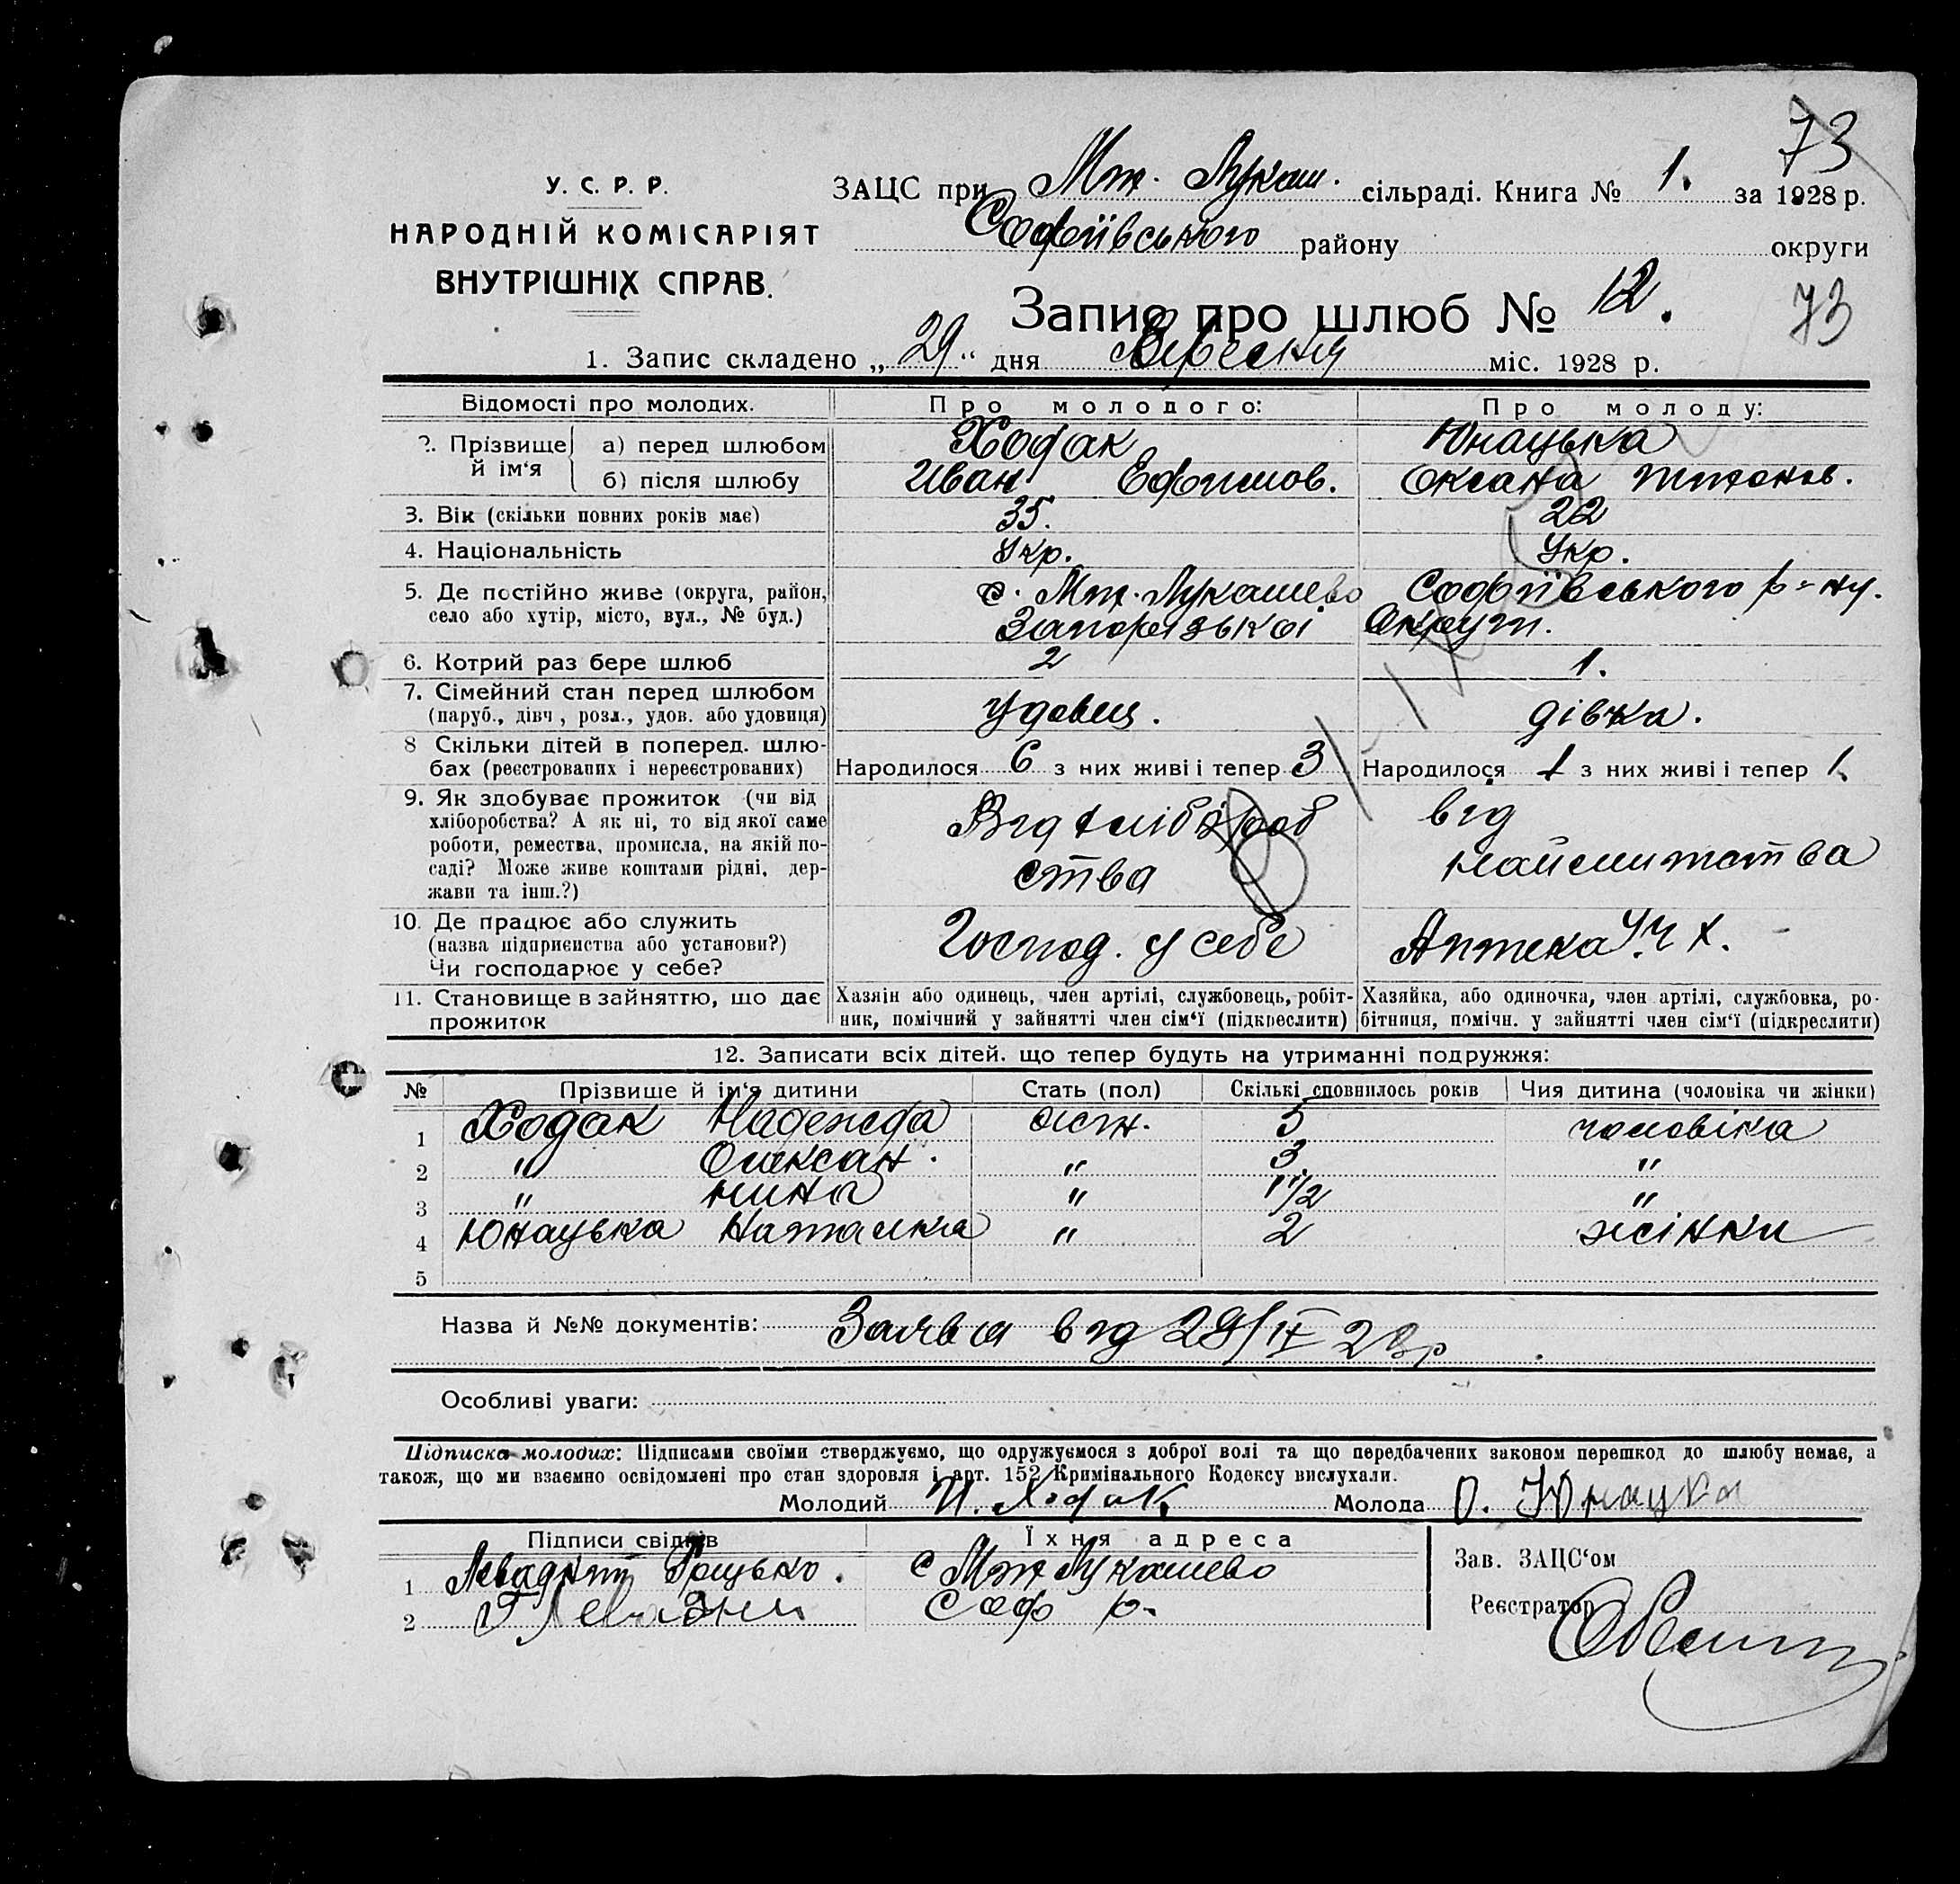 73
У. С. Р. Р.
НАРОДНІЙ КОМІСАРІЯТ
ВНУТРІШНІХ СПРАВ.
ЗАЦС при Мих. Лукаш. сільраді. Книга № 1. за 1928 р.
Софіївського району округи
Запис про шлюб № 12.
73
1. Запис складено „29“ дня Вересня міс. 1928 р.
Відомості про молодих. Про молодого: Про молоду:
2. Прізвище й ім‘я а) перед шлюбом Ходак Юнацька
б) після шлюбу Иван Ефимов. Оксана
3. Вік (скільки повних років має) 35. 22
4. Національність Укр. Укр.
5. Де постійно живе (округа, район, с. Лукашево Софіївського р-ну.
село або хутір, місто, вул., № буд.) Запорізької Округи.
6. Котрий раз бере шлюб 2 1.
7. Сімейний стан перед шлюбом
(паруб., дівч, розл., удов. або удовиця) удовец. дівка.
8 Скільки дітей в поперед. шлю-
бах (реєстрованих і нереєстрованих) Народилося 6 з них живі і тепер 3 Народилося 1 з них живі і тепер 1.
9. Як здобуває прожиток (чи від
хліборобства? А як ні, то від якої саме
роботи, ремества, промисла, на якій по-
саді? Може живе коштами рідні, дер-
жави та інш.?)
Від хлібороб
ства
від
наймитства
10. Де працює або служить
(назва підприєиства або установи?)
Чи господарює у себе?
Господ. у себе Аптека
11. Становище в зайняттю, що дає
прожиток
Хазяін або одинець, член артілі, службовець, робіт-
ник, помічний у зайнятті член сім‘ї (підкреслити)
Хазяйка, або одиночка, член артілі, службовка, ро-
бітниця, помічн. у зайнятті член сім‘ї (підкреслити)
12. Записати всіх дітей. що тепер будуть на утриманні подружжя:
№ Прізвище й ім‘я дитини Стать (пол) Скількі сповнилось років Чия дитина (чоловіка чи жінки)
1 Ходак Надежда жін. 5 чоловіка
2 " Олексан. " 3. "
3 " Нина " 1 1/2 "
4 Юнацька Наталка " 2 жінки
5
Назва й №№ документів: Заява від 29/IX 28р
Особливі уваги:
Підписка молодих: Підписами своїми стверджуємо, що одружуємося з доброї волі та що передбачених законом перешкод до шлюбу немає, а
також, що ми взаємно освідомлені про стан здоровля і арт. 152 Кримінального Кодексу вислухали.
Молодий И. Ходак Молода О. Юнацка
Підписи свідків Їхня адреса
1 Грицько. с Лукашево
2 Соф р-
Зав. ЗАЦС‘ом
Реєстратор